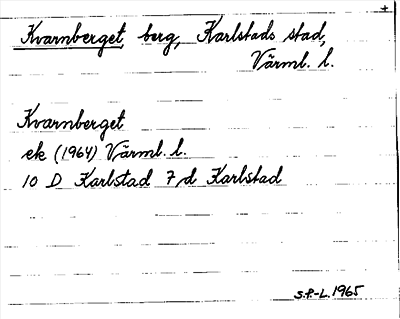 +
Kvarnberget, berg, Karlstads stad,
Värml. l.
Kvarnberget
ek (1964) Värml. l.
10 D Karlstad 7 d Karlstad
S.P-L. 1965